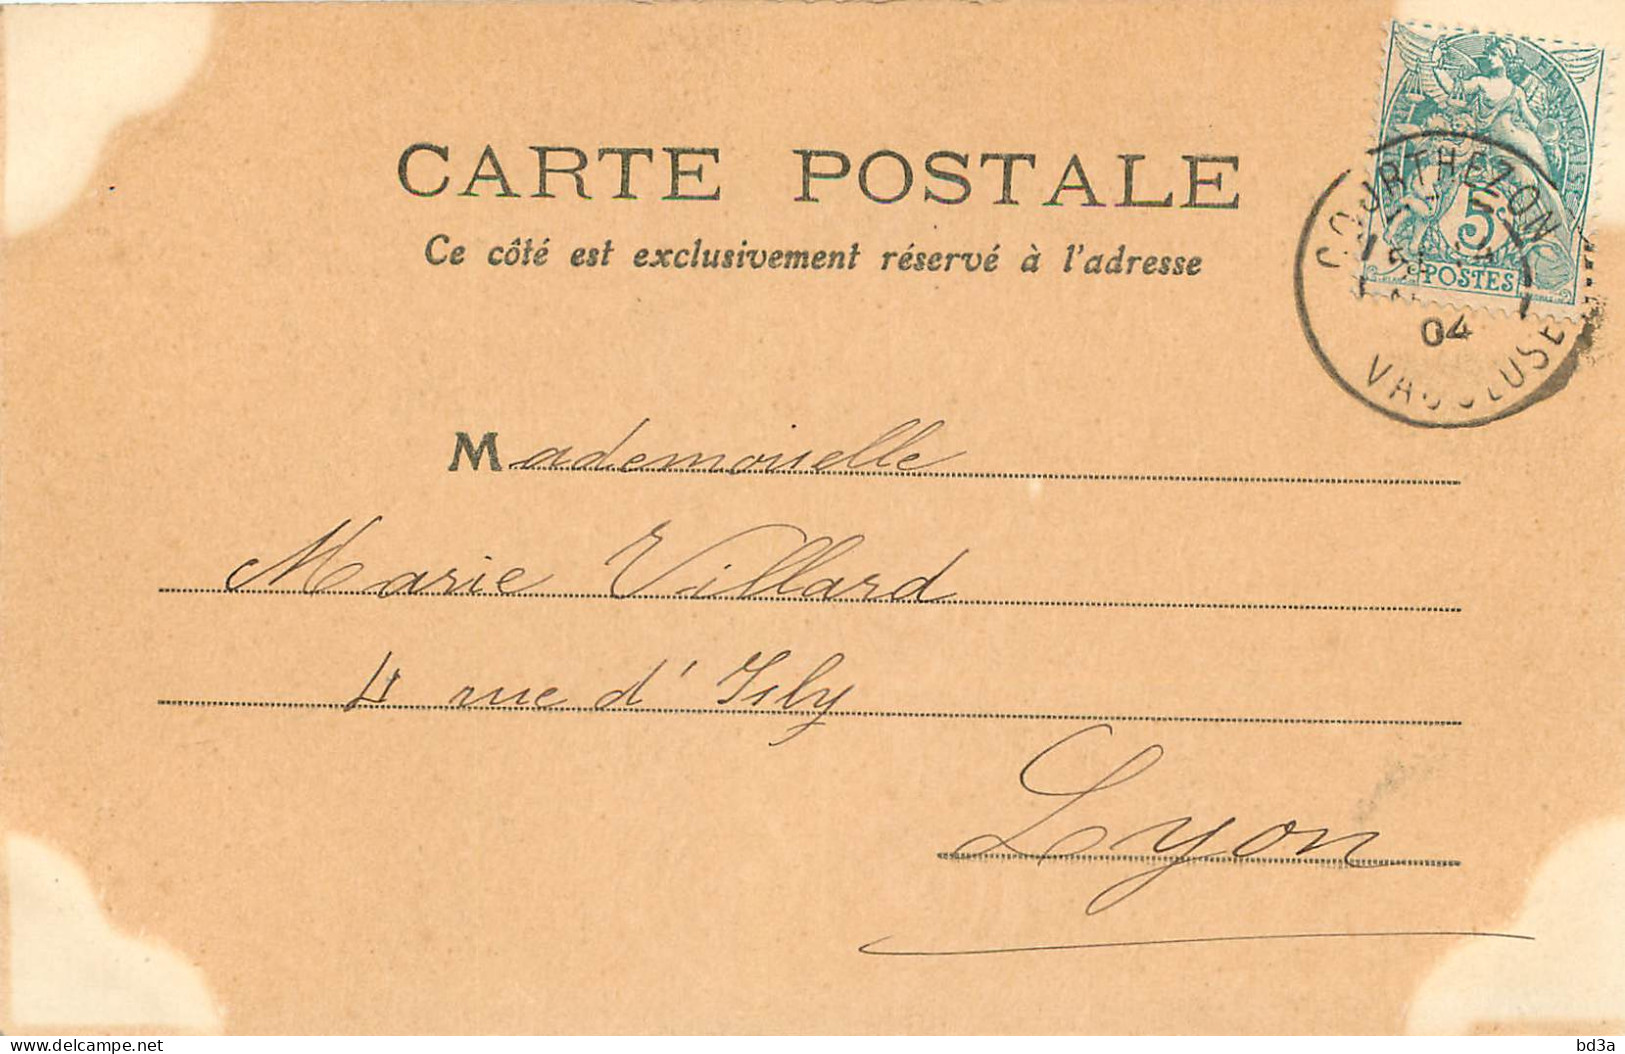 CARTE POSTALE
Ce côté est exclusivement réservé à l'adresse
FRANÇAISE
5
POSTES
COURTHEZON
04
VAUCLUSE
Mademoiselle
Marie Villard
4 rue d'Isly
Lyon
delcampe.net
bd3a